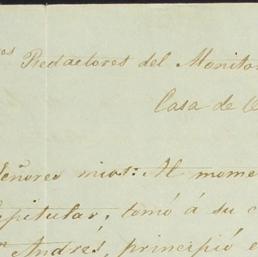 es Redactores del Monito
Casa de
eñores mios: Al mome
pitular, tomó á su c
Andrés, principió e